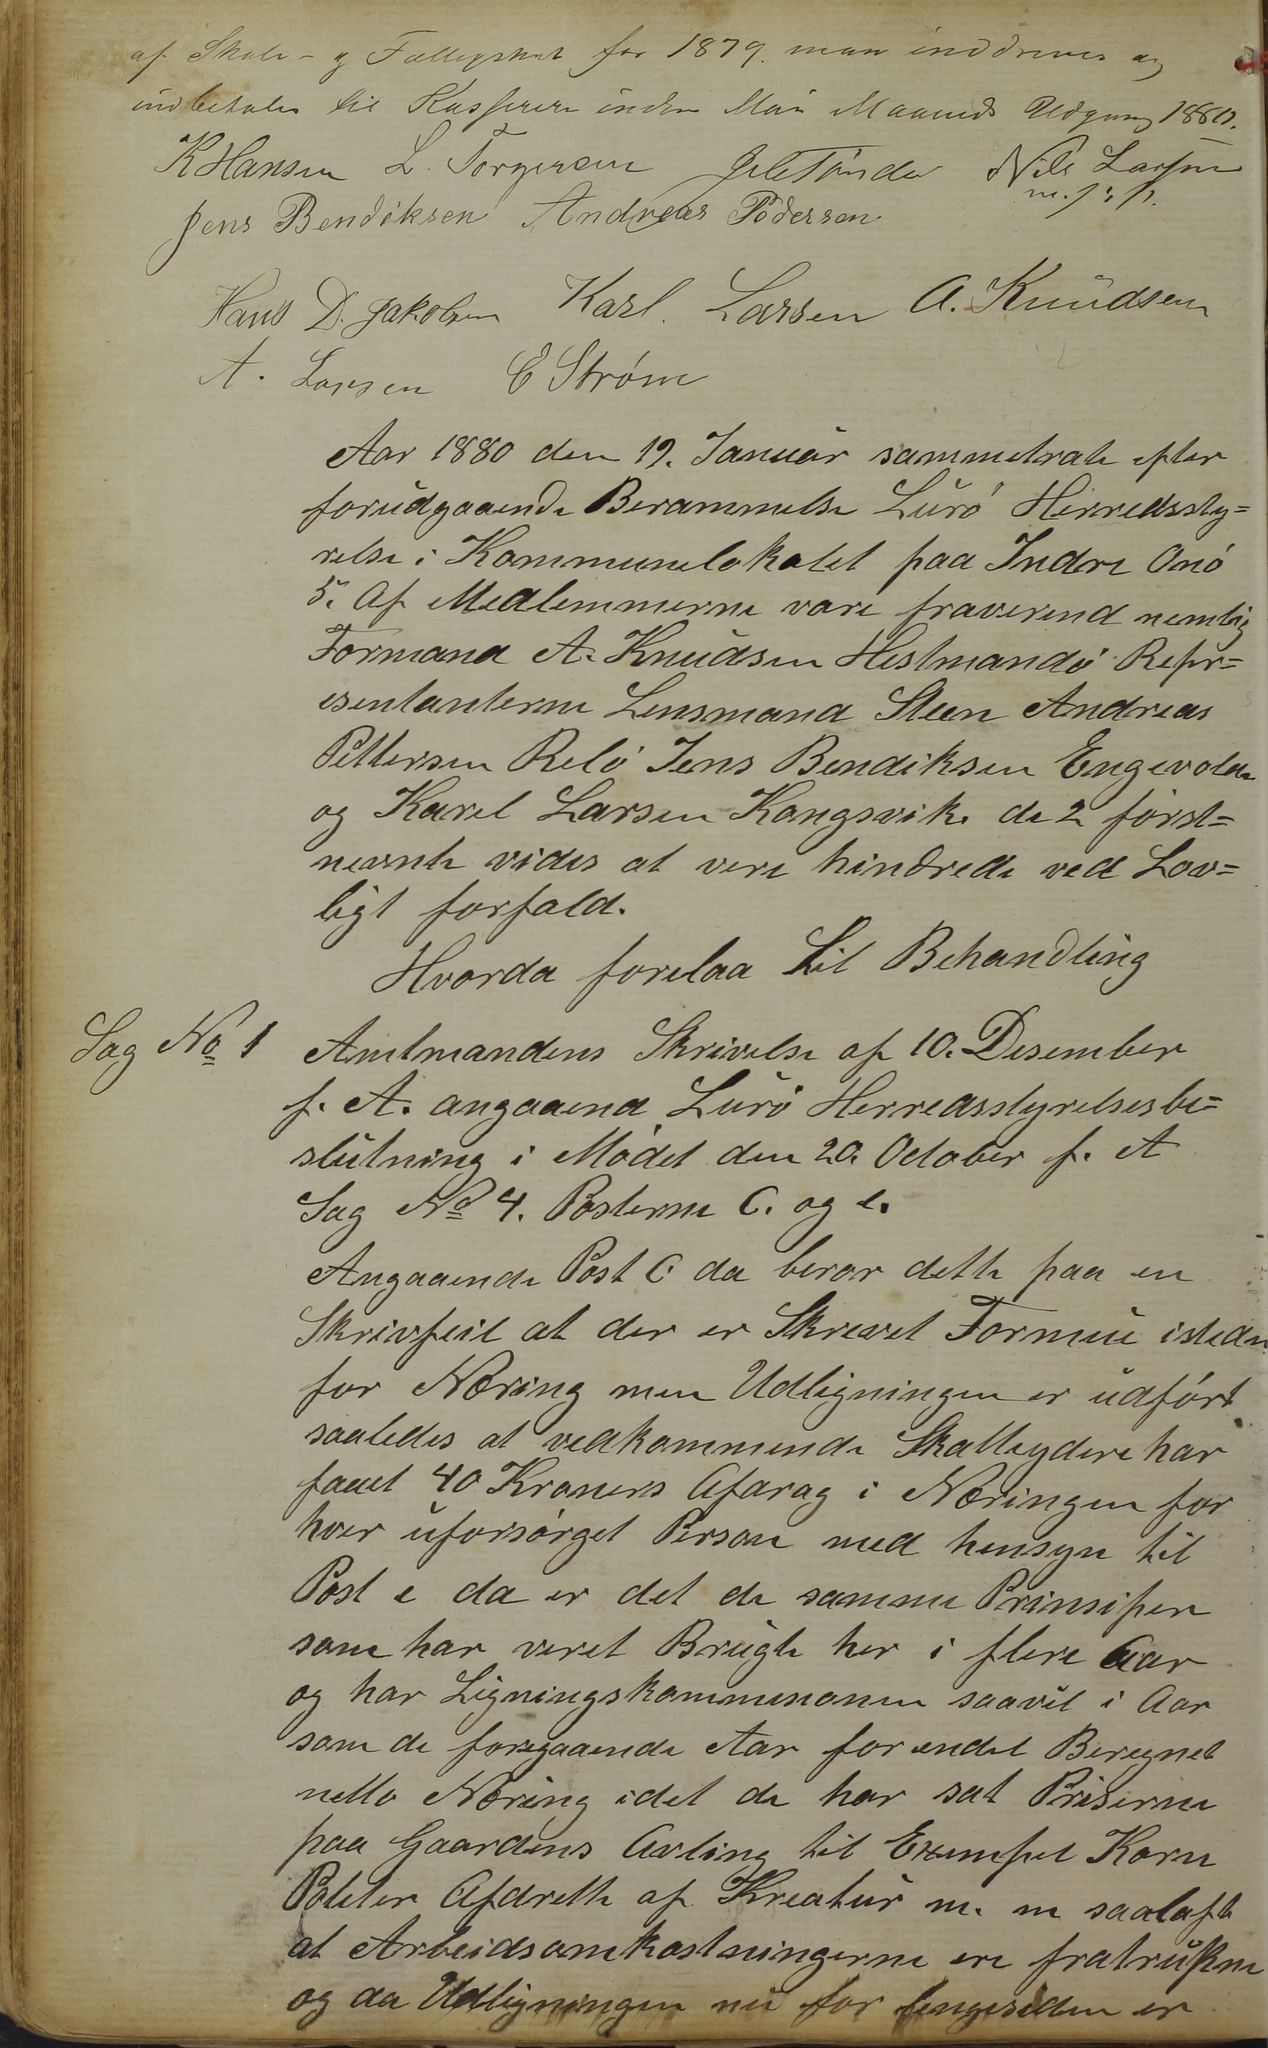 af Skole- og Fællegskat for 1879. maa inddrives og
indbetales til Kasserer inden Mai Maaneds Udgang 1880.
K Hansen L. Torgersen Nils Larsen
m. f. p.
Jens Bendiksen Andreas Pedersen
Hans D. Jakobsen Karl. Larsen A. Knudsen
A. Larsen E Strøm
Aar 1880 den 19. Januar sammetrate efter
forudgaaende Berammelse Lurö Herredssty=
relse i Kommunelokalet paa Indre Onö
5. Af Medlemmerne vare fraverend nemlig
Formand A. Knudsen Hestmandö Repr=
esentanterne Lensmand Steen Andreas
Pettersen Relö Jens Bendiksen Engevolde
og Karel Larsen Kongsvik. de 2 först=
nevnte vides at vere hindrede ved Lov=
ligt forfald.
Hvorda forelaa til Behandling
Sag No 1 Amtmandens Skrivelse af 10. Desember
f. A. angaaend Lurö Herredsstyrelsesbe=
slutning i Mödet den 20. October f. A
Sag No 4. Posterne C. og e.
Angaaende Post C da beror dette paa en
Skrivfeil at der er Skrevet Formue isteden
for Næring men Udligningen er udfört
saaledes at vedkommende Skatteydere har
faaet 40 Kroners Afdrag i Næringen for
hver uforsörget Person med hensyn til
Post e da er det de samme Prinsiper
som har veret Brugte her i flere Aar
og har Ligningskommisionen saavel i Aar
som de foregaaende Aar for endel Beregnet
netto Næring idet de har sat Priserne
paa Gaardens Avling til Exempel Korn
Poteter Afdrette af Kreatur m. m saalaft
at Arbeidsomkostningerne ere fratrukne
og da Udligningen nu for lengesiden er